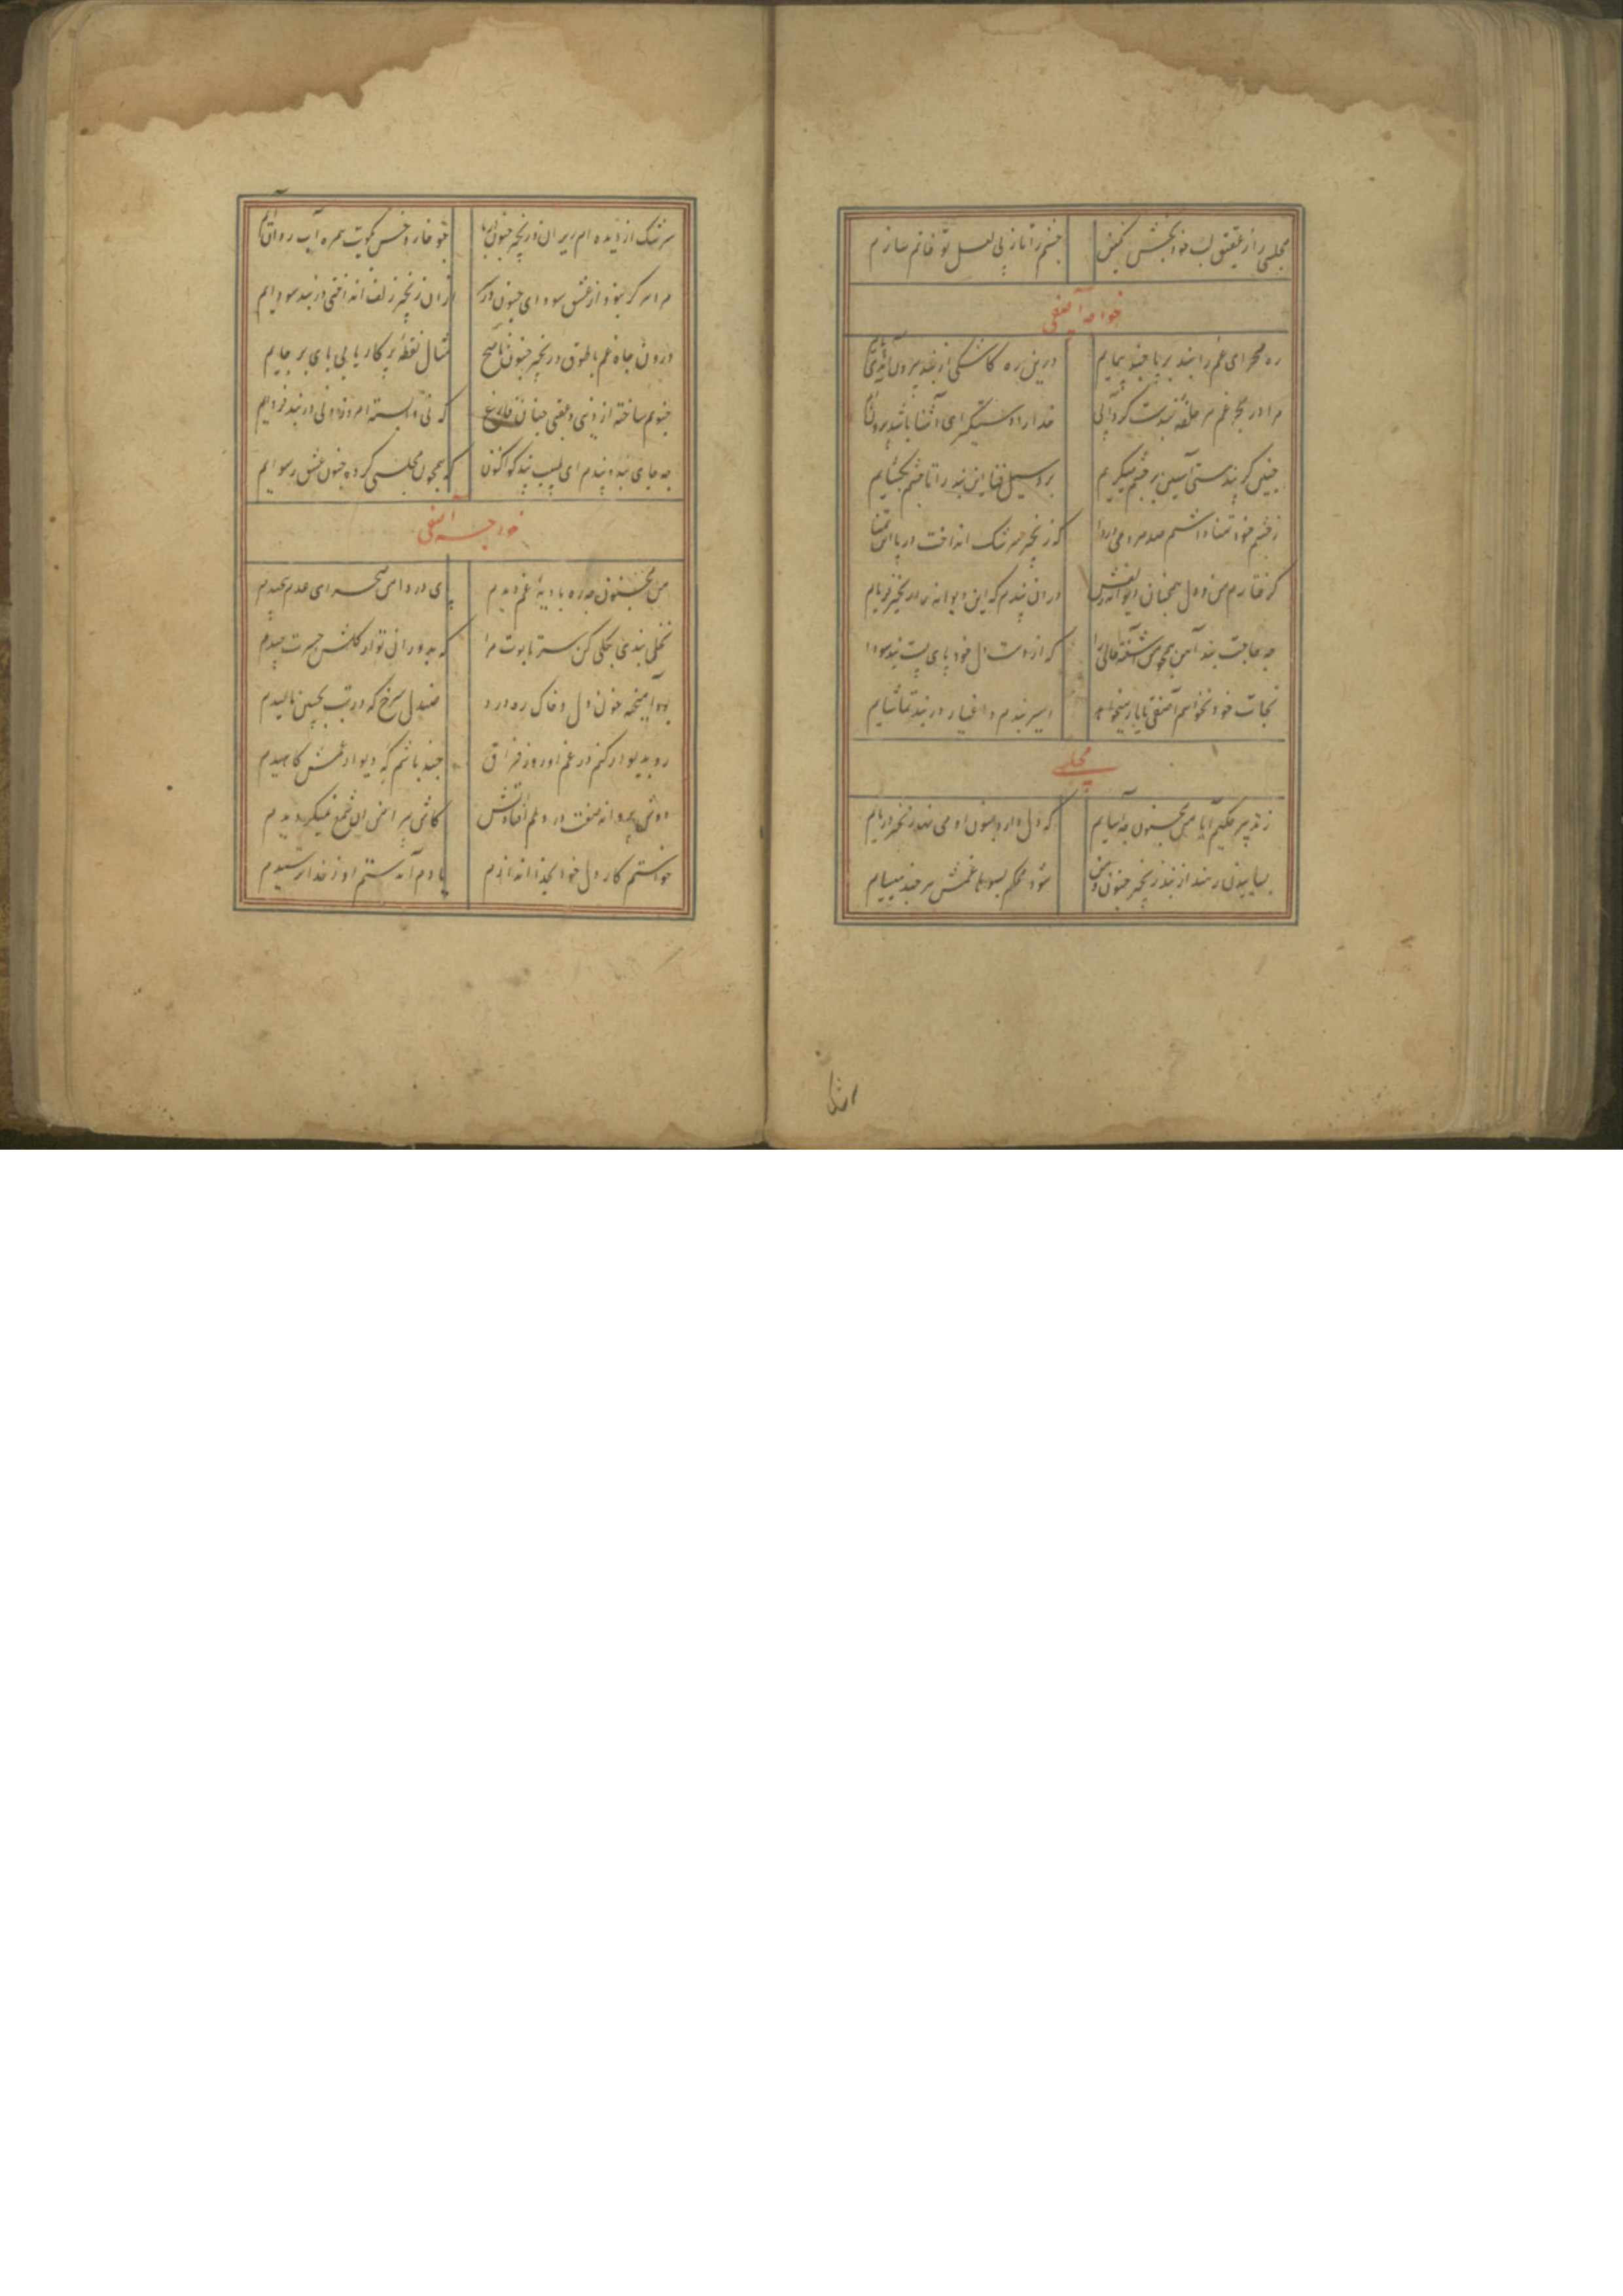 مجلسی را از عقیق لب خود بخش نگین
چشم را تا ز پی لعل تو خاتم سازم
خواجه آصفی
ره صحرای غم را بند بر پا چند پیمایم
درین ره کاشکی از بند بیرون
مرا در بحر غم هر حلقه بندت گردابی
خدا را دستگیر ای آشنا باشد برون
چنین کر بند مستی آستین بر چشم میگیرم
برو سیل فنا این بند را تا چشم بگشایم
ز چشم خود تمنا داشتم صد
که زنجیر سرشک انداخت در پا این تمنا
گرفتارم من و دل همچنان دیوانه زلفش
در آن بندم که این دیوانه را زنجیر فرمایم
چه حاجت بند آهن همچو من آشفته حالی را
که از دست دل خود پای بست بند سودا
نجات خود نخواهم آصفی تا یار میخواهد
اسیر بندم و اغیار در بند تماشایم
مجلسی
ز تدبیر حکیم آیا من مجنون چه آسایم
که دل دارد جنون او می نهد زنجیر در پایم
بیایید ای رفیقان از بند زنجیر جنون من
شود محکم غمش هر چند می سایم
اشک
سرشک از دیده ام ریزان و زنجیر جنون بر پا
چو خار و خس بکویت همره آب روان آیم
مرا سر گر نبود از عشق سودای جنون در سر
از آن زنجیر زلف انداختی در بند سودایم
درون چاه غم با طوق و زنجیر جنون ناصح
مثال نقطه پرکار یابی پای بر جایم
جنونم ساخته از دنیی و عقبی چنان فارغ
که نی وابسته امروز و نی در بند فردایم
چه جای بند و پندم ای لبیب پندگو اکنون
که همچون مجلسی کرده جنون عشق رسوایم
خواجه آصفی
من مجنون چو ره بادیه غم دیدم
پای در دامن صحرای عدم پیچیدم
نخل بندی بگلی کن سر تابوت مرا
که بدوران تو از گلشن حسرت چیدم
بود آمیخته خون دل و خاک ره درد
صندل سرخ که در تب بجبین مالیدم
رو بدیوار کنم در غم او روز فراق
چند باشم که ز دیوار غمش کاهیدم
دوش پروانه صفت در دلم افتاد آتش
کاش پیراهن آن شمع نمیگردیدم
خواستم کار دل خود بخدا اندازم
یادم آمد ستم او ز خدا ترسیدم